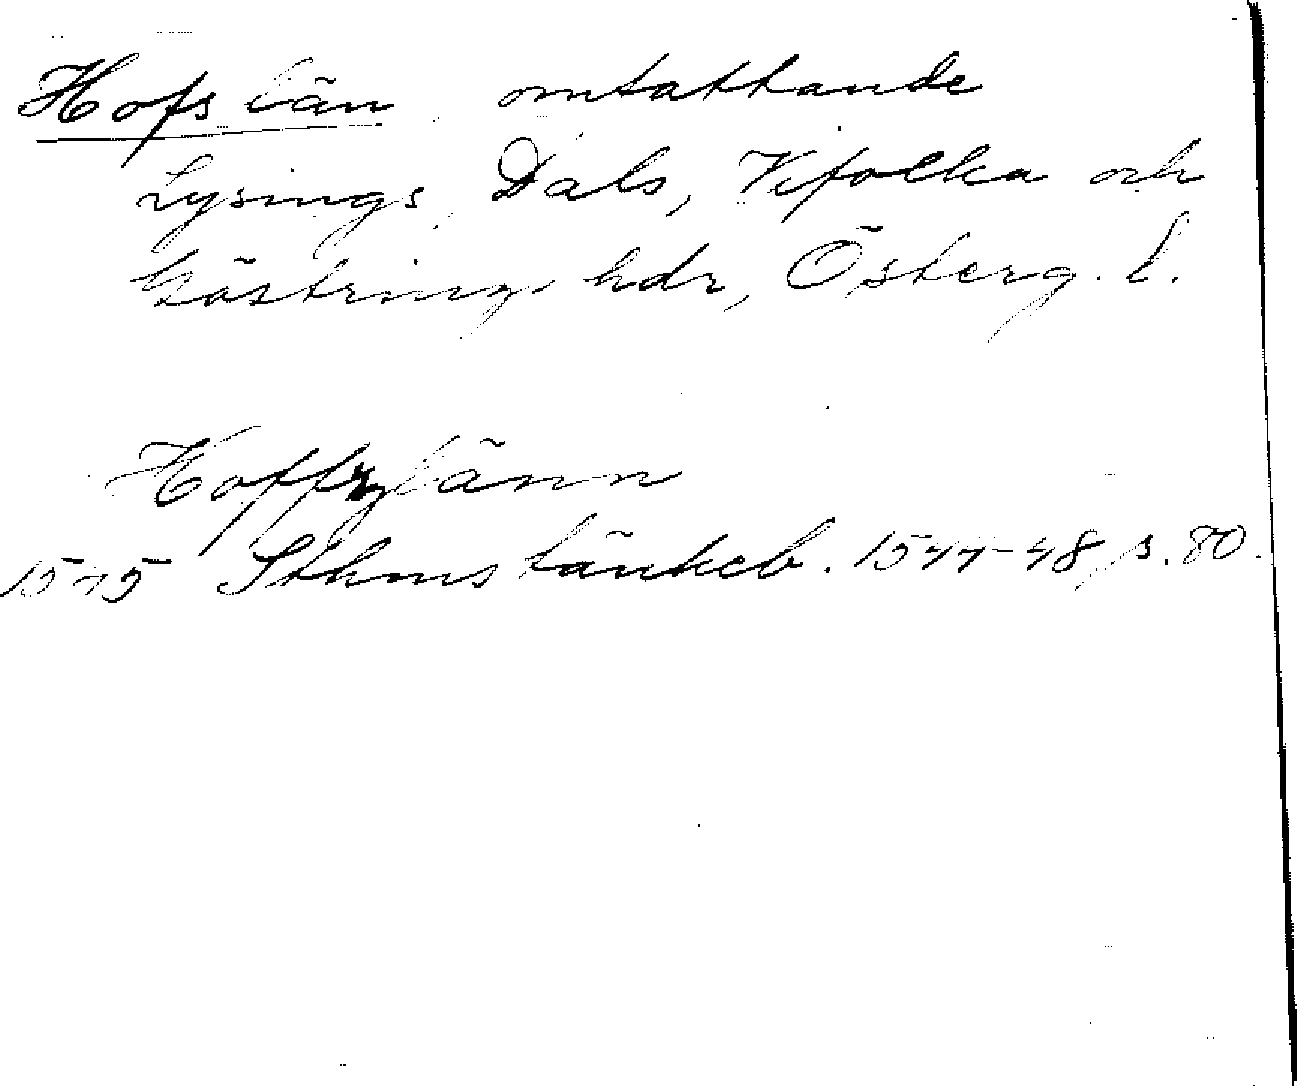 Hofs län omfattande
Lysings, Dals, Vifolka och
Göstrings hdr, Österg. l.
Hoffz länn
1545 Sthms tänkeb. 1544-48, s. 80.